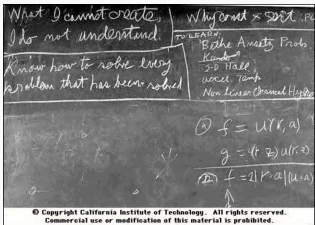 What I cannot create,
I do not understand.
Know how to solve every
problem that has been solved
Why const × sort . PG
TO LEARN:
Bethe Ansatz Prob.
Kondo
2-D Hall
accel. Temp
Non linear Classical Hydro
f = u(r, a)
g = u(r, z)
f = 2|r·a|
© Copyright California Institute of Technology. All rights reserved.
Commercial use or modification of this material is prohibited.